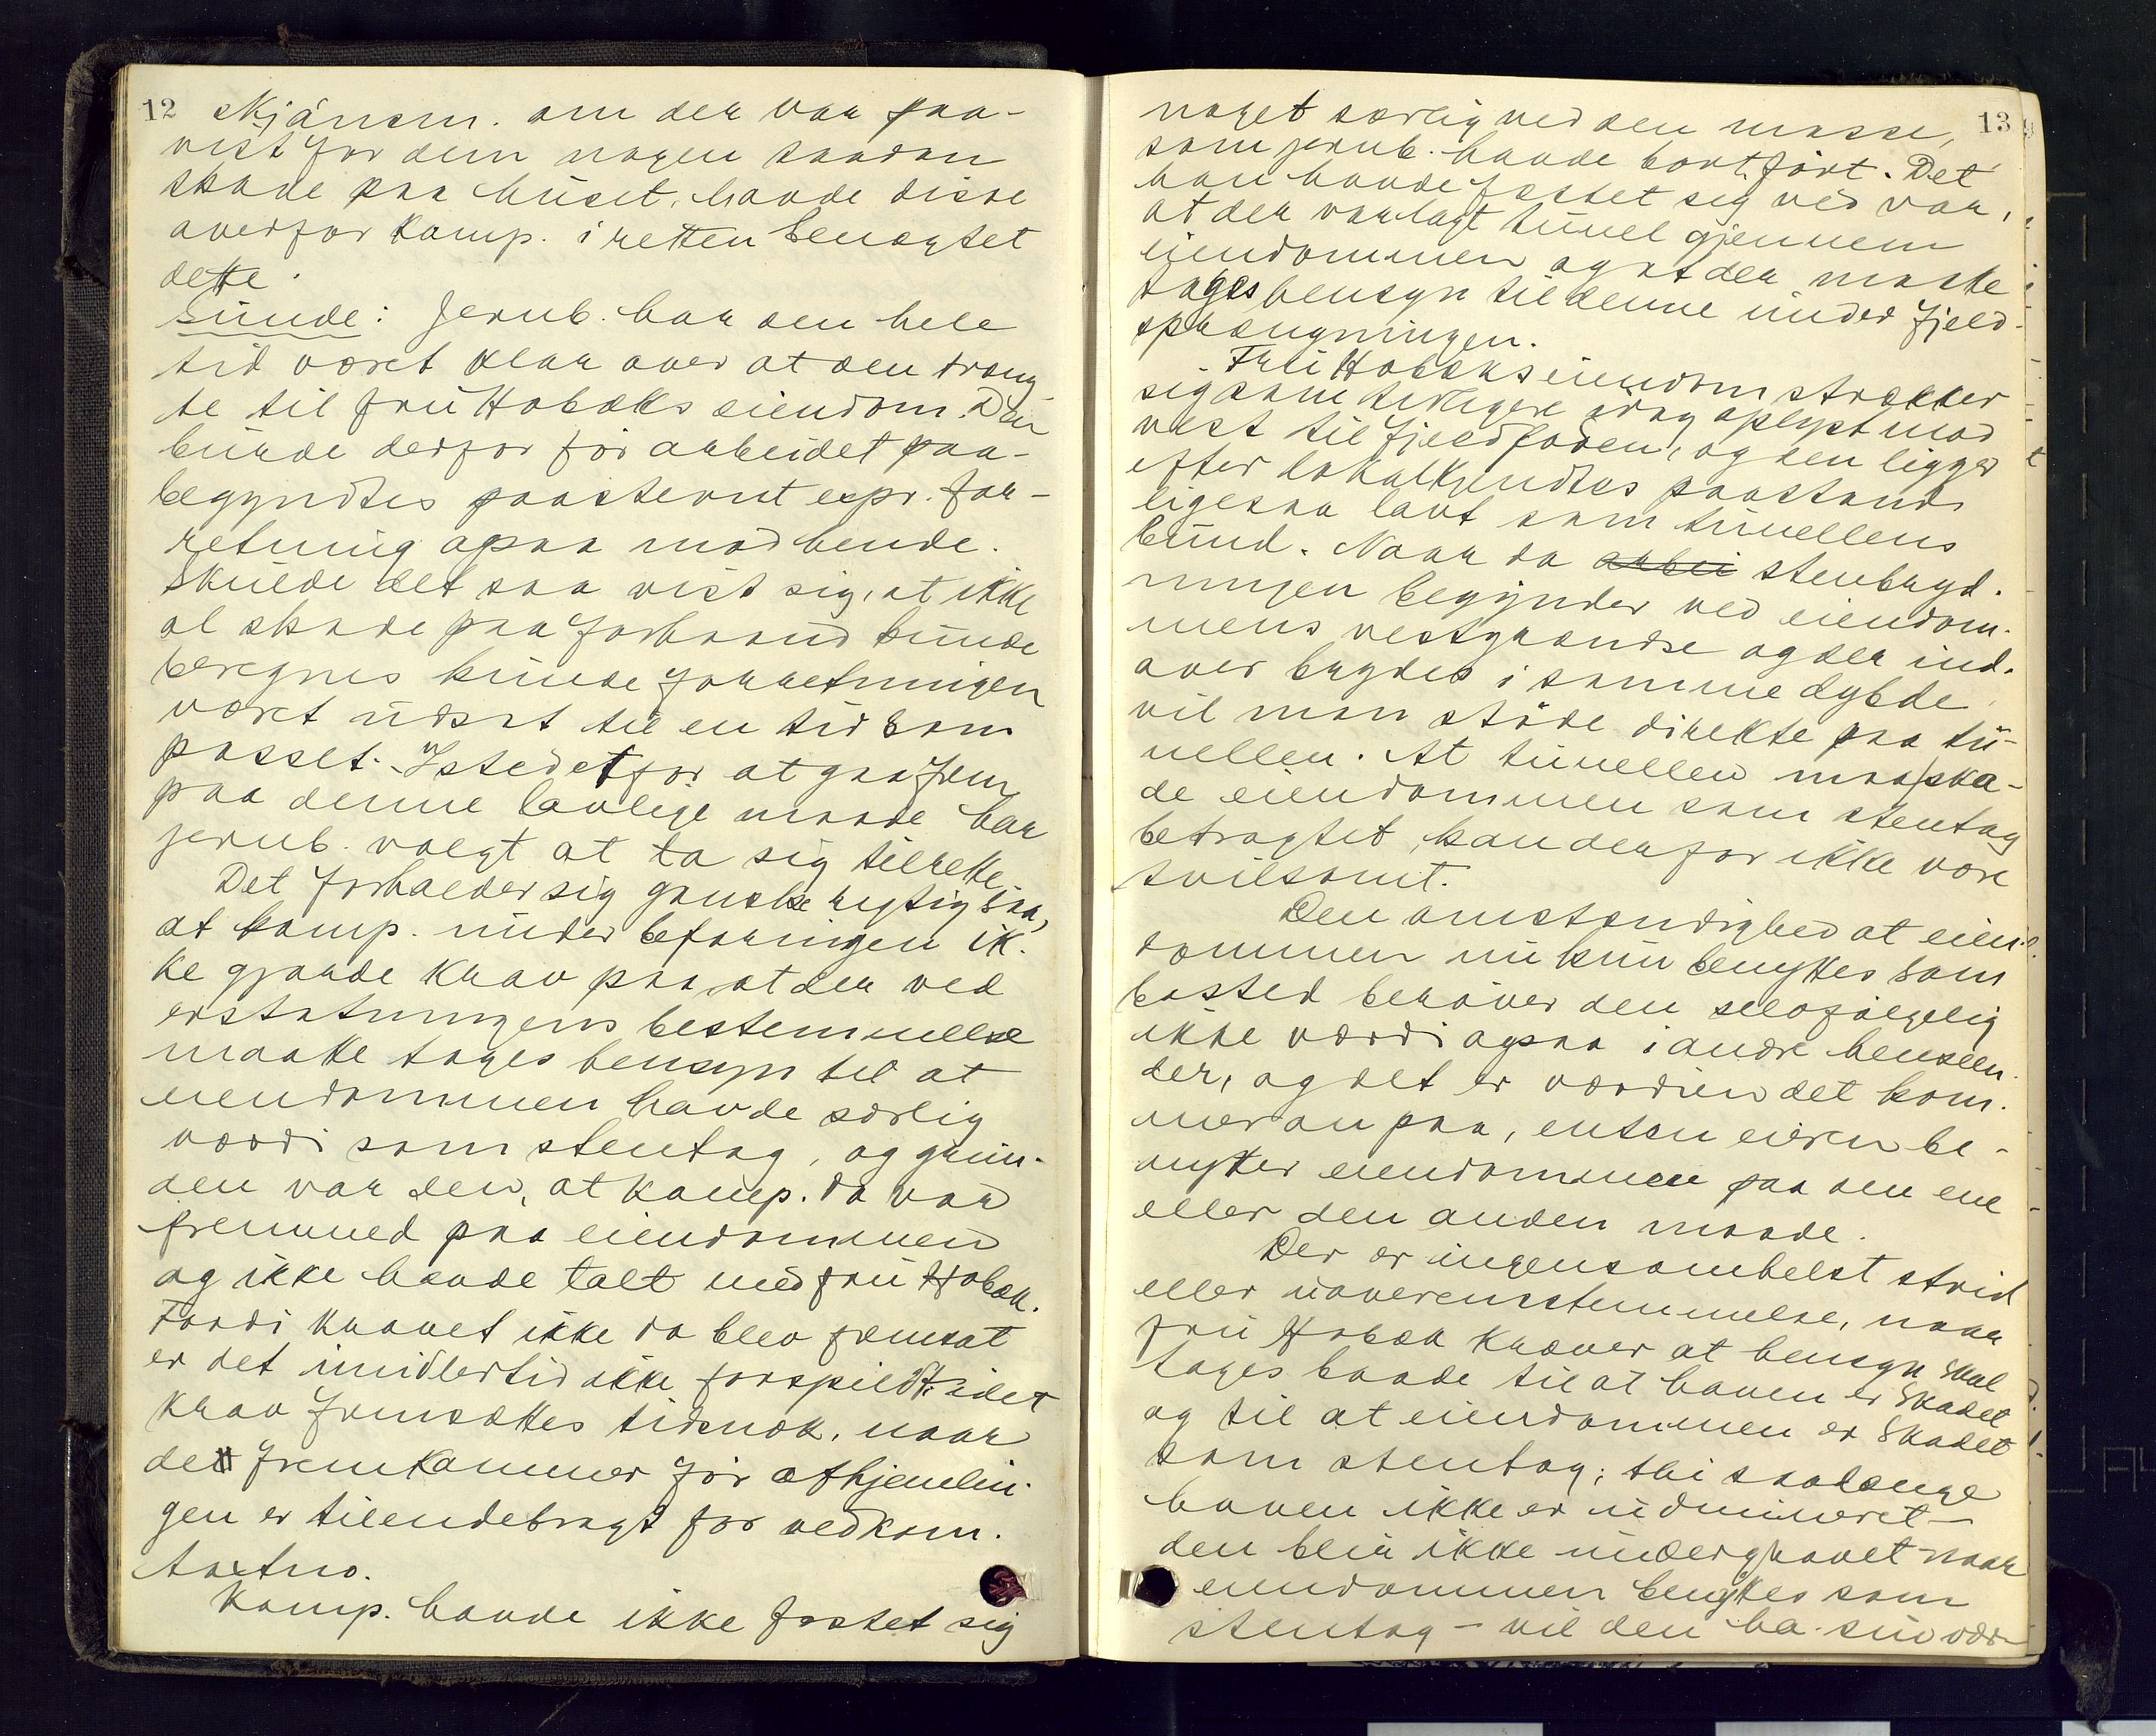 12 skjönsm. om der var paa-
vist for dem nogen saadan
skade paa huset, havde disse
overfor komp. i retten benegtet
dette.
Sunde: Jernb. har den hele
tid været klar over at den træng-
te til fru Hobæks eiendom. Den
burde derfor før arbeidet paa-
begyndtes paastevnt expr. for-
retning ogsaa mod hende.
Skulde det saa vist sig, at ikke
al skade paa forhaand kunde
beregnes kunde forretningen
været udsat til en tid som
passet. Istedetfor at gaa frem
paa denne lovlige maade har
jernb. valgt at ta sig tilrette.
Det forholder sig ganske rigtig saa,
at komp. under befaringen ik-
ke gjorde krav paa at der ved
erstatningens bestemmelse
maatte tages hensyn til at
eiendommen havde særlig
værdi som stentag, og grun-
den var den, at komp. da var
fremmed paa eiendommen
og ikke havde talt med fru Hobæk.
Fordi kravet ikke da blev fremsat
er det imidlertid ikke forspildt, idet
krav fremsættes tidsnok, naar
det fremkommer før afhjemlin-
gen er tilendebragt for vedkom.
taxtno.
Komp. havde ikke fæstet sig
13
noget særlig ved den masse,
som jernb. havde bortført. Det
han havde fæstet sig ved var,
at der var lagt tunel gjennem
eiendommen og at der maatte
tages hensyn til denne under fjeld-
sprængningen.
Fru Hobæks eiendom strækker
sig som tidligere idag oplyst mod
vest til fjeldfoden, og den ligger
efter lokalkjendtes paastand
ligesaa lavt som tunellens
bund. Naar da arbei stenbryd-
ningen begynder ved eiendom-
mens vestgrændse og der ind-
over brydes i samme dybde,
vil man støde direkte paa tu-
nellen. At tunellen maa ska-
de eiendommen som stentag
betragtet, kan derfor ikke være
tvilsomt.
Den omstændighed at eien-
dommen nu kun benyttes som
bosted berøver den selvfølgelig
ikke værdi ogsaa i andre henseen-
der, og det er værdien det kom-
mer an paa, enten eieren be-
nytter eiendommen paa den ene
eller den anden maade.
Der er ingensomhelst strid
eller uoverensstemmelse, naar
fru Hobæk kræver at hensyn skal
tages baade til at haven er skadet
og til at eiendommen er skadet
som stentag; thi saalænge
haven ikke er udmineret -
den blir ikke undergravet naar
eiendommen benyttes som
stentag - vil den ha sin vær-